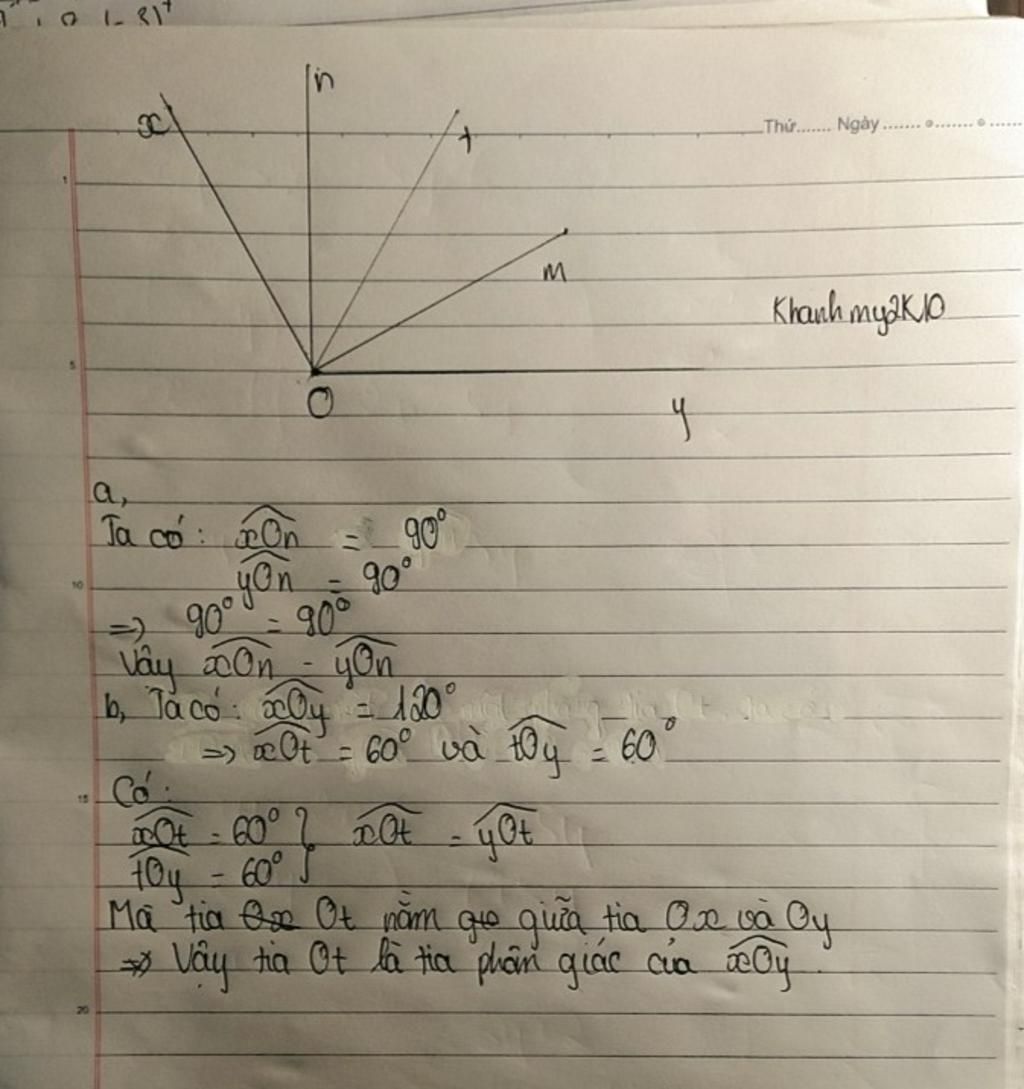 x
n
t
m
Thứ....... Ngày
1
Khanhmy2K10
5
O
y
a,
Ta có: xOn = 90°
10
yOn = 90°
=> 90° = 90°
Vây xOn = yOn
b, Ta có: xOy = 120°
=> xOt = 60° và tOy = 60°
Có:
15
xOt = 60° } xOt = yOt
tOy = 60°
Mà tia Ot nằm giữa tia Ox và Oy
=> Vậy tia Ot là tia phân giác của xOy.
20